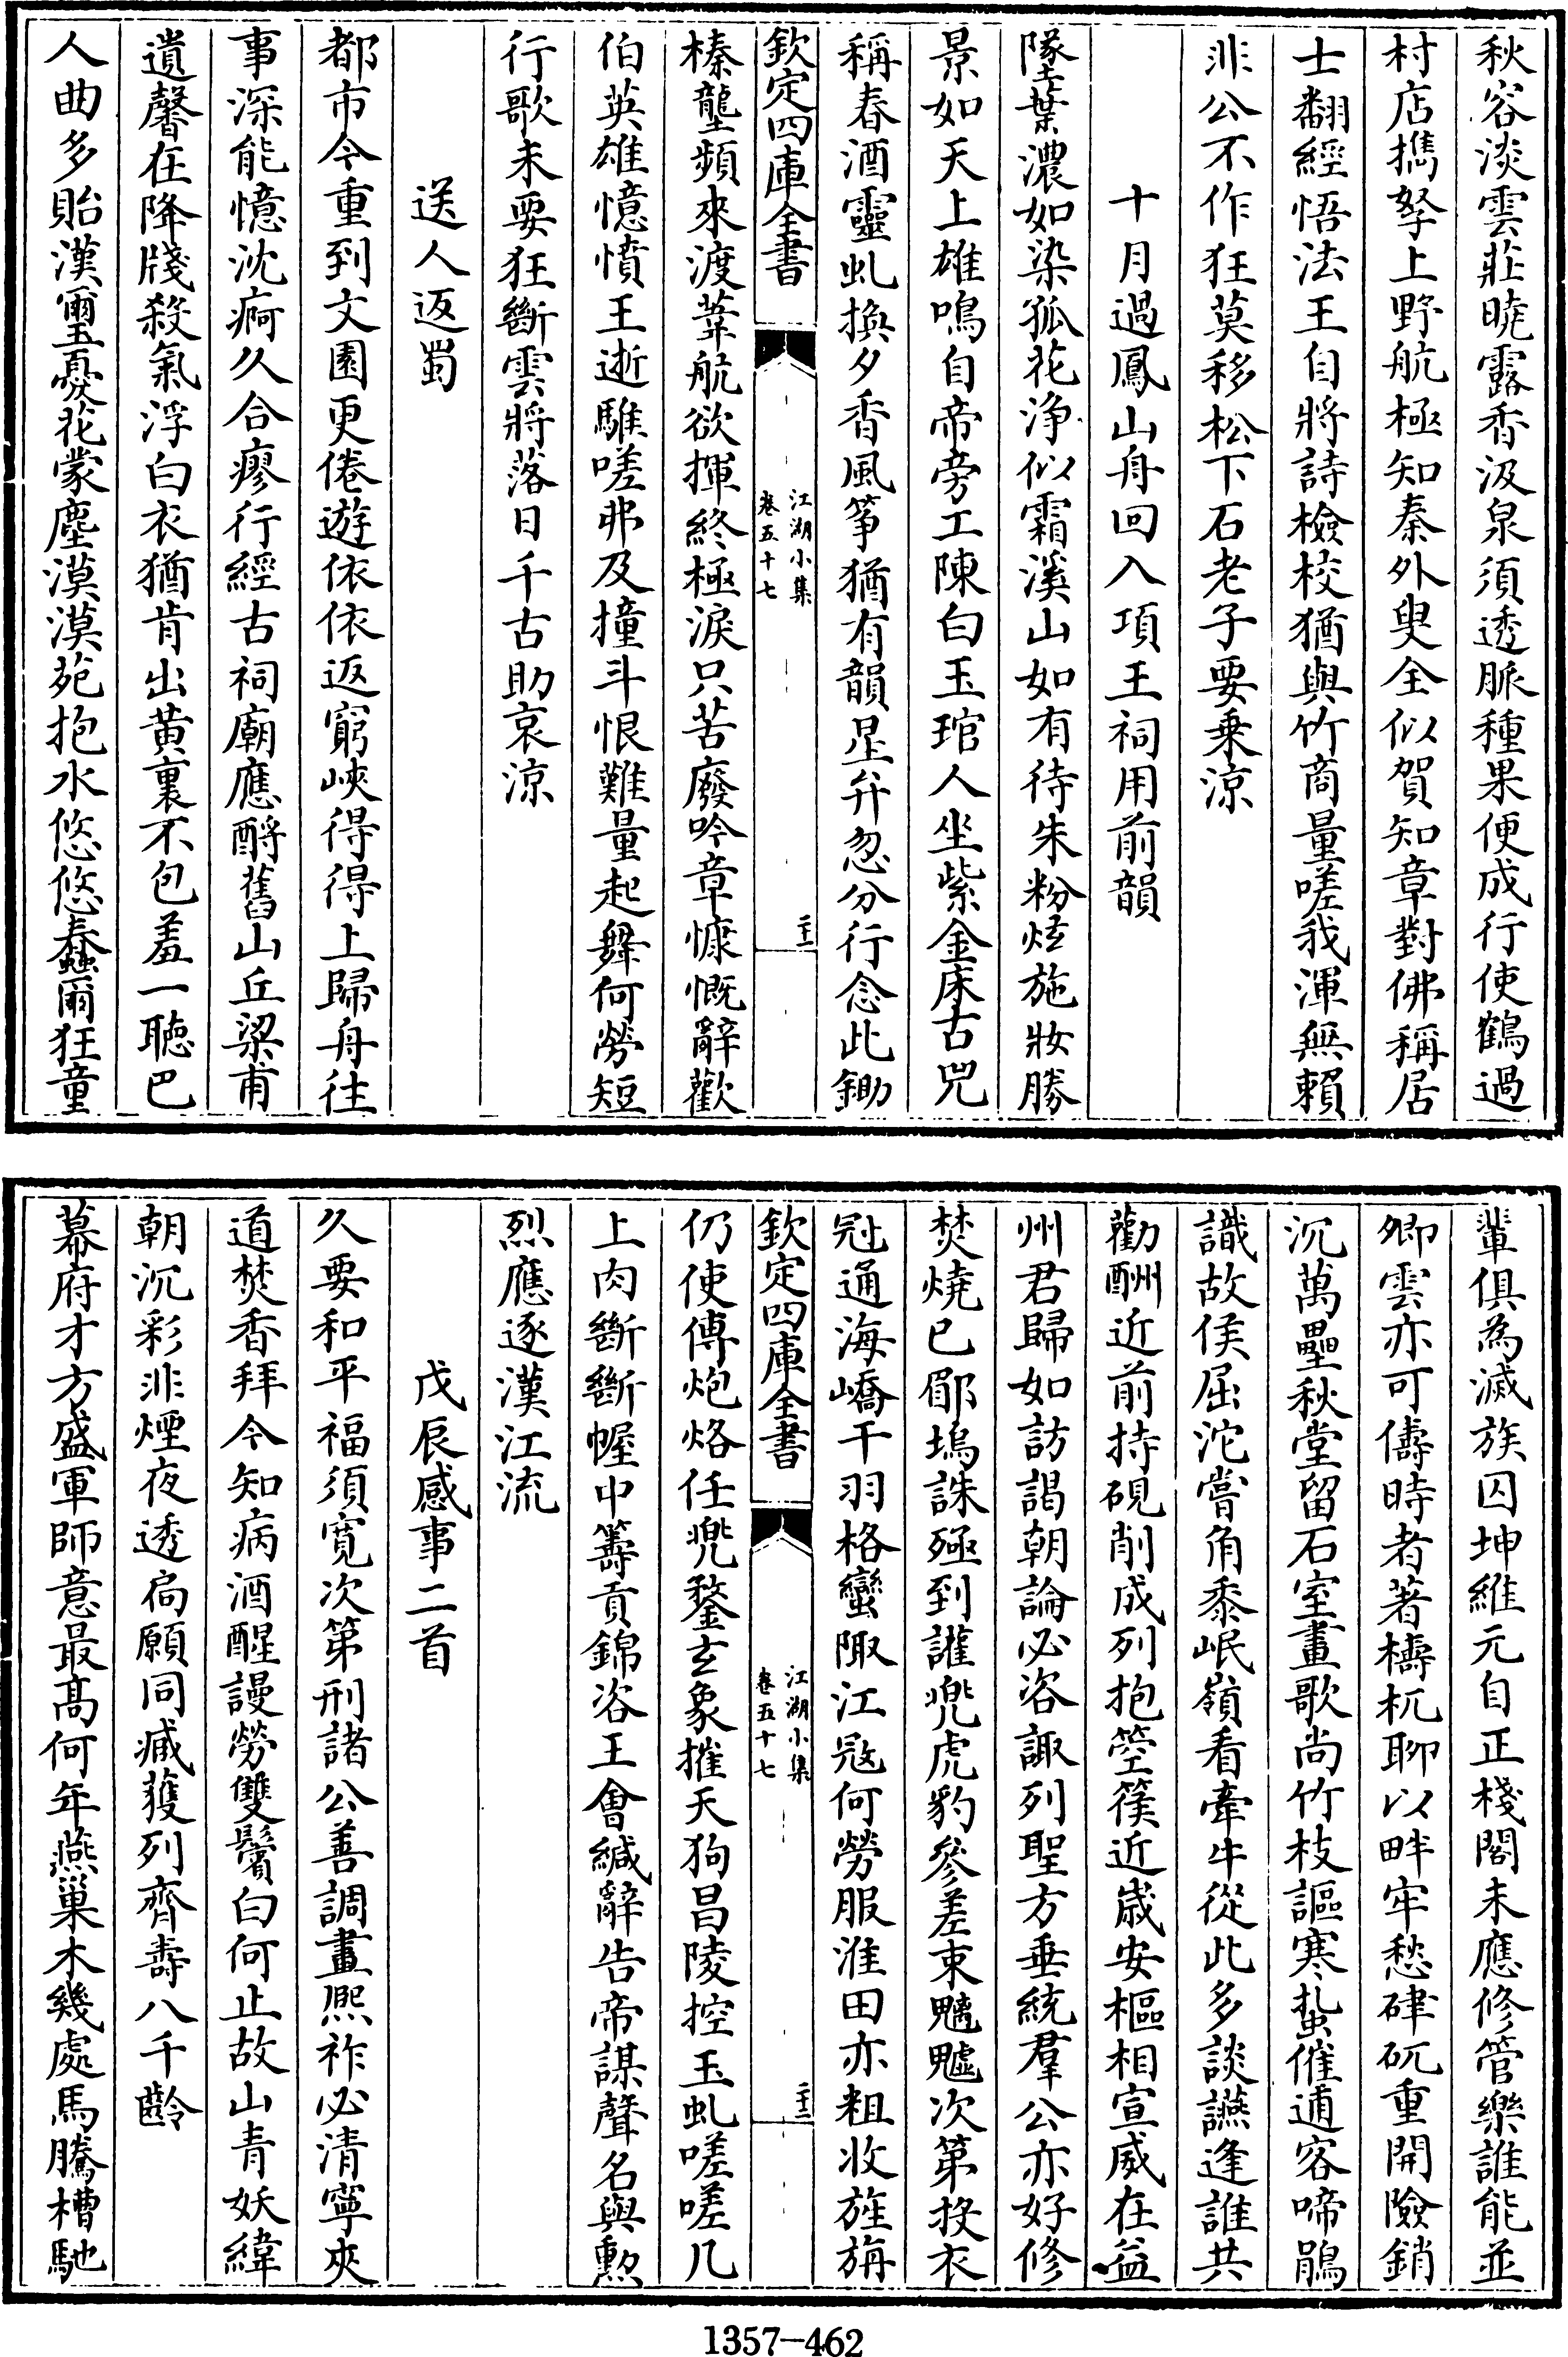 秋容淡雲莊曉露香汲泉須透脈種果便成行使鶴過
村店擕孥上野航極知秦外叟全似賀知章對佛稱居
士翻經悟法王自將詩檢校猶與竹商量嗟我渾無賴
非公不作狂莫移松下石老子要乗涼
十月過鳳山舟回入項王祠用前韻
隊葉濃如染孤花浄似霜溪山如有待朱粉炫施妝勝
景如天上雄鳴自帝旁工陳白玉琯人坐紫金床古咒
稱春酒靈虬換夕香風筝猶有韻星弁忽分行念此鋤
欽定四庫全書
江湖小集
卷五十七
二十一
榛壟頻來渡葦航欲揮終極淚只苦廢吟章慷慨辭歡
伯英雄憶憤王逝騅嗟弗及撞斗恨難量起舞何勞短
行歌未要狂斷雲將落日千古助哀涼
送人返蜀
都市今重到文園更倦遊依依返窮峽得得上歸舟往
事深能憶沈痾久合瘳行經古祠廟應酹舊山丘梁甫
遺馨在降牋殺氣浮白衣猶肯出黄裏不包羞一聴巴
人曲多貽漢璽憂花蒙塵漠漠苑抱水悠悠蠢爾狂童
輩俱為滅族囚坤維元自正棧閣未應修管樂誰能並
卿雲亦可儔時者著檮杌聊以畔牢愁硉矹重開險銷
沉萬壘秋堂留石室畫歌尚竹枝謳寒蛩催逋客啼鵑
識故侯屈沱嘗角黍岷嶺看牽牛從此多談讌逢誰共
勸酬近前持硯削成列抱箜篌近嵗安樞相宣威在益
州君歸如訪謁朝論必咨諏列聖方垂統羣公亦好修
焚燒已郿塢誅殛到讙兜虎豹參差束魑魅次第投衣
冠通海嶠干羽格蠻陬江冦何勞服淮田亦粗收旌旃
欽定四庫全書
江湖小集
卷五十七
二十二
仍使傅炮烙任兠鍪玄象摧天狗昌陵控玉虬嗟嗟几
上肉斷斷幄中籌貢錦咨王會緘辭告帝謀聲名與勲
烈應逐漢江流
戊辰感事二首
久要和平福須寛次第刑諸公善調畫熈祚必清寧夾
道焚香拜今知病酒醒謾勞雙鬢白何止故山青妖緯
朝沉彩非煙夜透扃願同臧蒦列齊壽八千齡
幕府才方盛軍師意最髙何年燕巢木幾處馬騰槽馳
1357-462